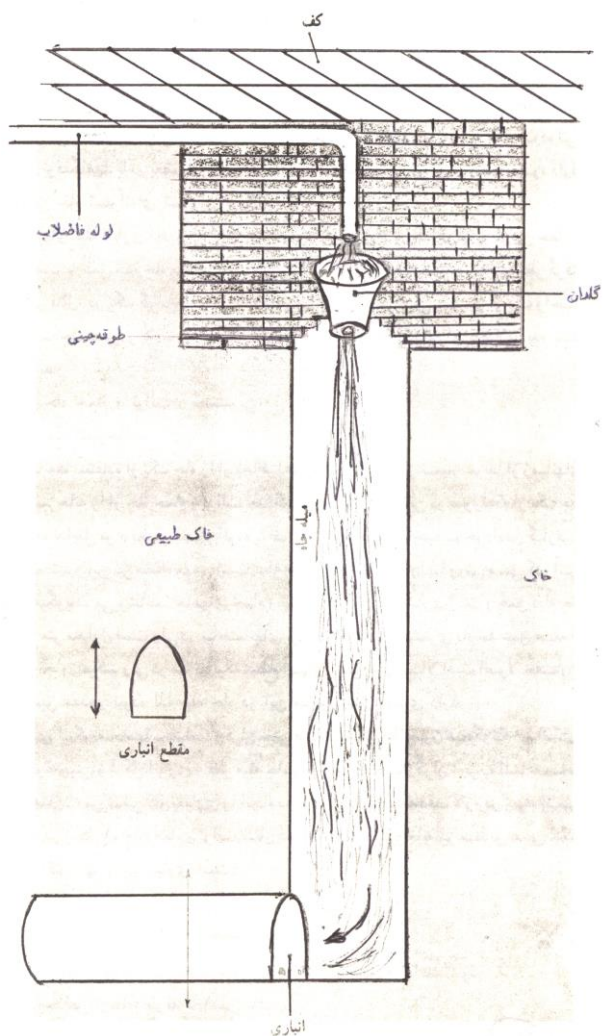 کف
لوله فاضلاب
گلدان
طوقه‌چینی
میله چاه
خاک طبیعی
خاک
مقطع انباری
انباری